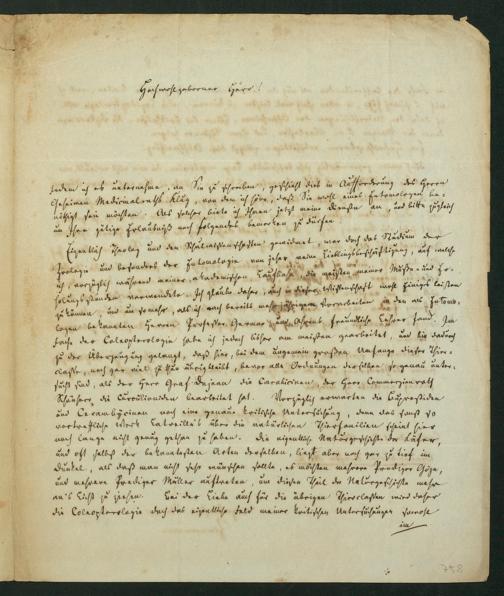 Hochwohlgeborner Herr!
Indem ich es unternehme, an Sie zu schreiben, geschieht dies in Aufforderung des Herrn
Geheimen Medicinalraths Klug, von dem ich höre, daß Sie wohl eines Entomologen be-
nöthigt sein möchten. Als solcher biete ich Ihnen jetzt meine Dienste an, und bitte zugleich
um Ihre gütige Erlaubniß noch folgendes bemerken zu dürfen.
Eigentlich Theolog und den Schulwissenschaften gewidmet, war doch das Studium der
Zoologie und besonders der Entomologie von jeher meine Lieblingsbeschäftigung, auf welche
ich, vorzüglich während meiner akademischen Laufbahn, die meisten meiner Muße- und Er-
holungsstunden verwendete. Ich glaube daher, auch in dieser Wissenschaft wohl Einiges leisten
zu können, und um so mehr, als ich nach bereits mehrjährigen Vorarbeiten in den als Entomo-
logen bekannten Herren Professor Germar und freundliche Lehrer fand. Im
Fache der Coleopterologie habe ich jedoch bisher am meisten gearbeitet, und bin dadurch
zu der Überzeugung gelangt, daß hier, bei dem ungemein großen Umfange dieser Thier-
classe, noch gar viel zu thun übrigbleibt, bevor alle Ordnungen derselben so genau unter-
sucht sind, als der Herr Graf Dejean die Carabicinen, der Herr Commerzienrath
Schönherr die Curculioniden bearbeitet hat. Vorzüglich erwarten die Buprestiden
und Cerambycinen noch eine genaue kritische Untersuchung, denn das sonst so
vortreffliche Werk Latreille's über die natürlichen Thierfamilien scheint hier
noch lange nicht genug gethan zu haben. Die eigentliche Naturgeschichte der Käfer,
und oft selbst der bekanntesten Arten derselben, liegt aber noch gar zu tief im
Dunkel, als daß man nicht sehr wünschen sollte, es möchten mehrere Prediger Göze,
und mehrere Prediger Müller auftreten, um diesen Theil der Naturgeschichte mehr
an's Licht zu ziehen. Bei der Liebe auch für die übrigen Thierclassen wird daher
die Coleopterologie doch das eigentliche Feld meiner kritischen Untersuchungen sowohl
im
758